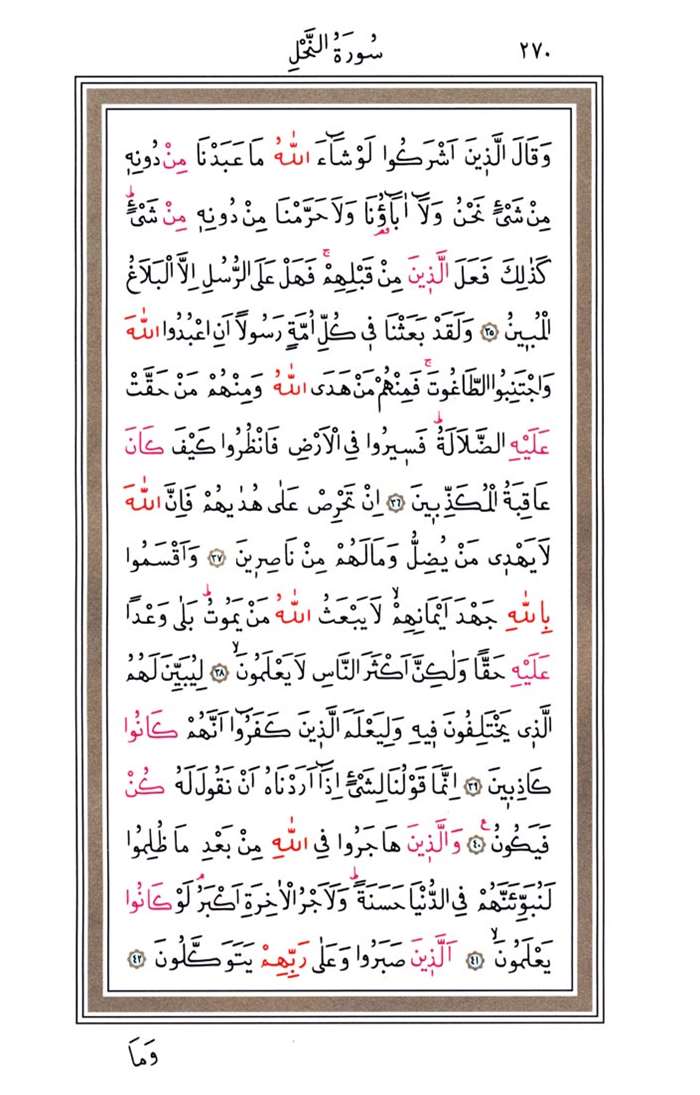 ٢٧٠ سُورَةُ النَّحْلِ
وَقَالَ الَّذ۪ينَ اَشْرَكُوا لَوْ شَٓاءَ اللّٰهُ مَا عَبَدْنَا مِنْ دُونِه۪
مِنْ شَيْءٍ نَحْنُ وَلَٓا اٰبَٓاؤُ۬نَا وَلَا حَرَّمْنَا مِنْ دُونِه۪ مِنْ شَيْءٍۜ
كَذٰلِكَ فَعَلَ الَّذ۪ينَ مِنْ قَبْلِهِمْۚ فَهَلْ عَلَى الرُّسُلِ اِلَّا الْبَلَاغُ
الْمُب۪ينُ ﴿٣٥﴾ وَلَقَدْ بَعَثْنَا ف۪ي كُلِّ اُمَّةٍ رَسُولًا اَنِ اعْبُدُوا اللّٰهَ
وَاجْتَنِبُوا الطَّاغُوتَۚ فَمِنْهُمْ مَنْ هَدَى اللّٰهُ وَمِنْهُمْ مَنْ حَقَّتْ
عَلَيْهِ الضَّلَالَةُۜ فَس۪يرُوا فِي الْاَرْضِ فَانْظُرُوا كَيْفَ كَانَ
عَاقِبَةُ الْمُكَذِّب۪ينَ ﴿٣٦﴾ اِنْ تَحْرِصْ عَلٰى هُدٰيهُمْ فَاِنَّ اللّٰهَ
لَا يَهْد۪ي مَنْ يُضِلُّ وَمَا لَهُمْ مِنْ نَاصِر۪ينَ ﴿٣٧﴾ وَاَقْسَمُوا
بِاللّٰهِ جَهْدَ اَيْمَانِهِمْۙ لَا يَبْعَثُ اللّٰهُ مَنْ يَمُوتُۜ بَلٰى وَعْدًا
عَلَيْهِ حَقًّا وَلٰكِنَّ اَكْثَرَ النَّاسِ لَا يَعْلَمُونَۙ ﴿٣٨﴾ لِيُبَيِّنَ لَهُمُ
الَّذ۪ي يَخْتَلِفُونَ ف۪يهِ وَلِيَعْلَمَ الَّذ۪ينَ كَفَرُٓوا اَنَّهُمْ كَانُوا
كَاذِب۪ينَ ﴿٣٩﴾ اِنَّمَا قَوْلُنَا لِشَيْءٍ اِذَٓا اَرَدْنَاهُ اَنْ نَقُولَ لَهُ كُنْ
فَيَكُونُ۟ ﴿٤٠﴾ وَالَّذ۪ينَ هَاجَرُوا فِي اللّٰهِ مِنْ بَعْدِ مَا ظُلِمُوا
لَنُبَوِّئَنَّهُمْ فِي الدُّنْيَا حَسَنَةًۜ وَلَاَجْرُ الْاٰخِرَةِ اَكْبَرُۢ لَوْ كَانُوا
يَعْلَمُونَۙ ﴿٤١﴾ اَلَّذ۪ينَ صَبَرُوا وَعَلٰى رَبِّهِمْ يَتَوَكَّلُونَ ﴿٤٢﴾
وَمَا